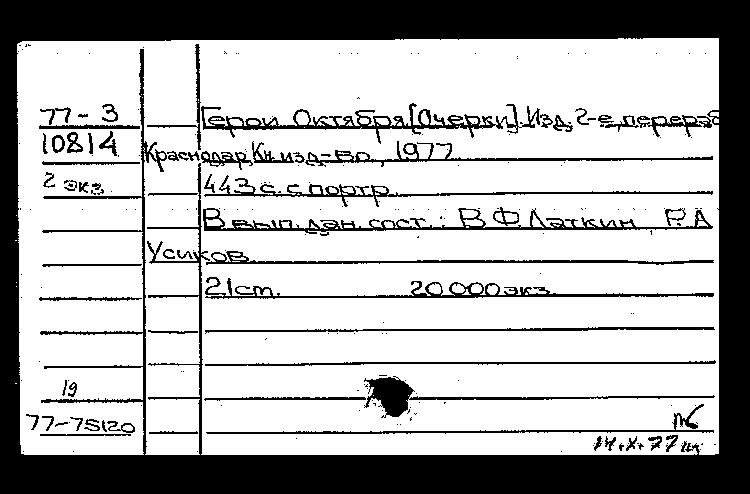 77-3 Герои Октября [Очерки]. Изд. 2-е, перераб
10814 Краснодар, Кн. изд-во, 1977.
2 экз 443 с. с портр.
В вып. дан. сост.: В.Ф. Латкин, Р.А.
Усиков.
21 см. 20 000 экз.
19
77-75120
14.X.77